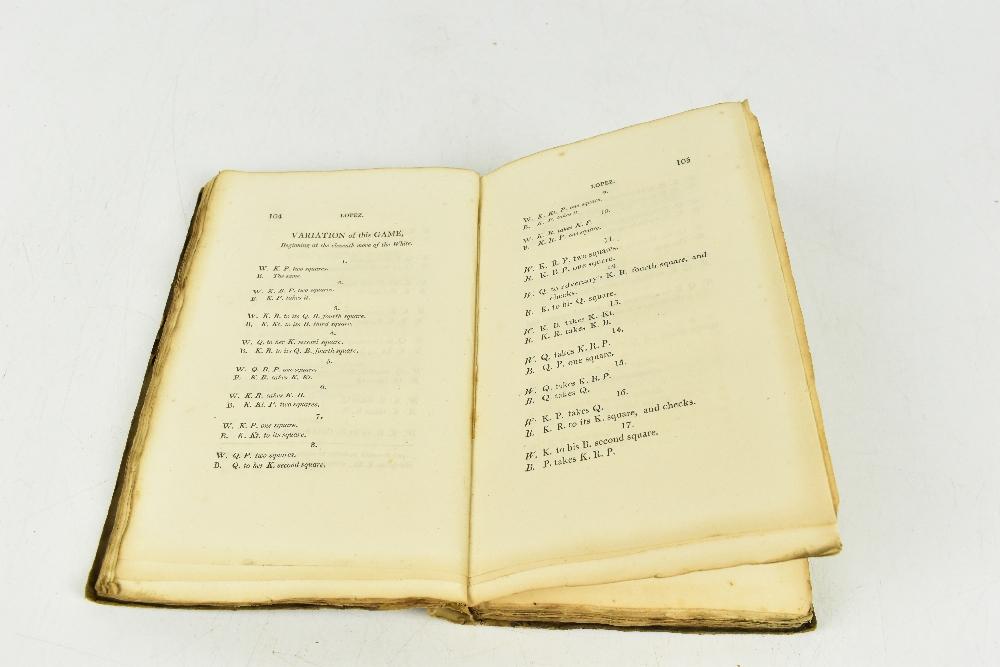 104 LOPEZ.
VARIATION of this GAME,
Beginning at the eleventh move of the White.
1.
W. K. P. two squares.
B. The same.
2.
W. K. B. P. two squares.
B. K. P. takes it.
3.
W. K. B. to its Q. B. fourth square.
B. K. Kt. to its B. third square.
4.
W. Q. to her K. second square.
B. K. B. to its Q. B. fourth square.
5.
W. Q. B. P. one square.
B. K. B. takes K. Kt.
6.
W. K. R. takes K. B.
B. K. Kt. P. two squares.
7.
W. K. P. one square.
B. K. Kt. to its square.
8.
W. Q. P. two squares.
B. Q. to her K. second square.
LOPEZ. 105
9.
W. K. Kt. P. one square.
B. K. P. takes it.
10.
W. K. R. takes K. P.
B. K. R. P. one square.
11.
W. K. R. P. two squares,
B. K. B. P. one square.
12
W. Q. to adversary's K. R. fourth square, and
checks.
B. K. to his Q. square.
13.
W. K. B. takes K. Kt.
B. K. R. takes K. B.
14.
W. Q. takes K. R. P.
B. Q. P. one square.
15.
W. Q. takes K. B. P.
B. Q. takes Q.
16.
W. K. P. takes Q.
B. K. R. to its K. square, and checks.
17.
W. K. to his B. second square.
B. P. takes K. R. P.